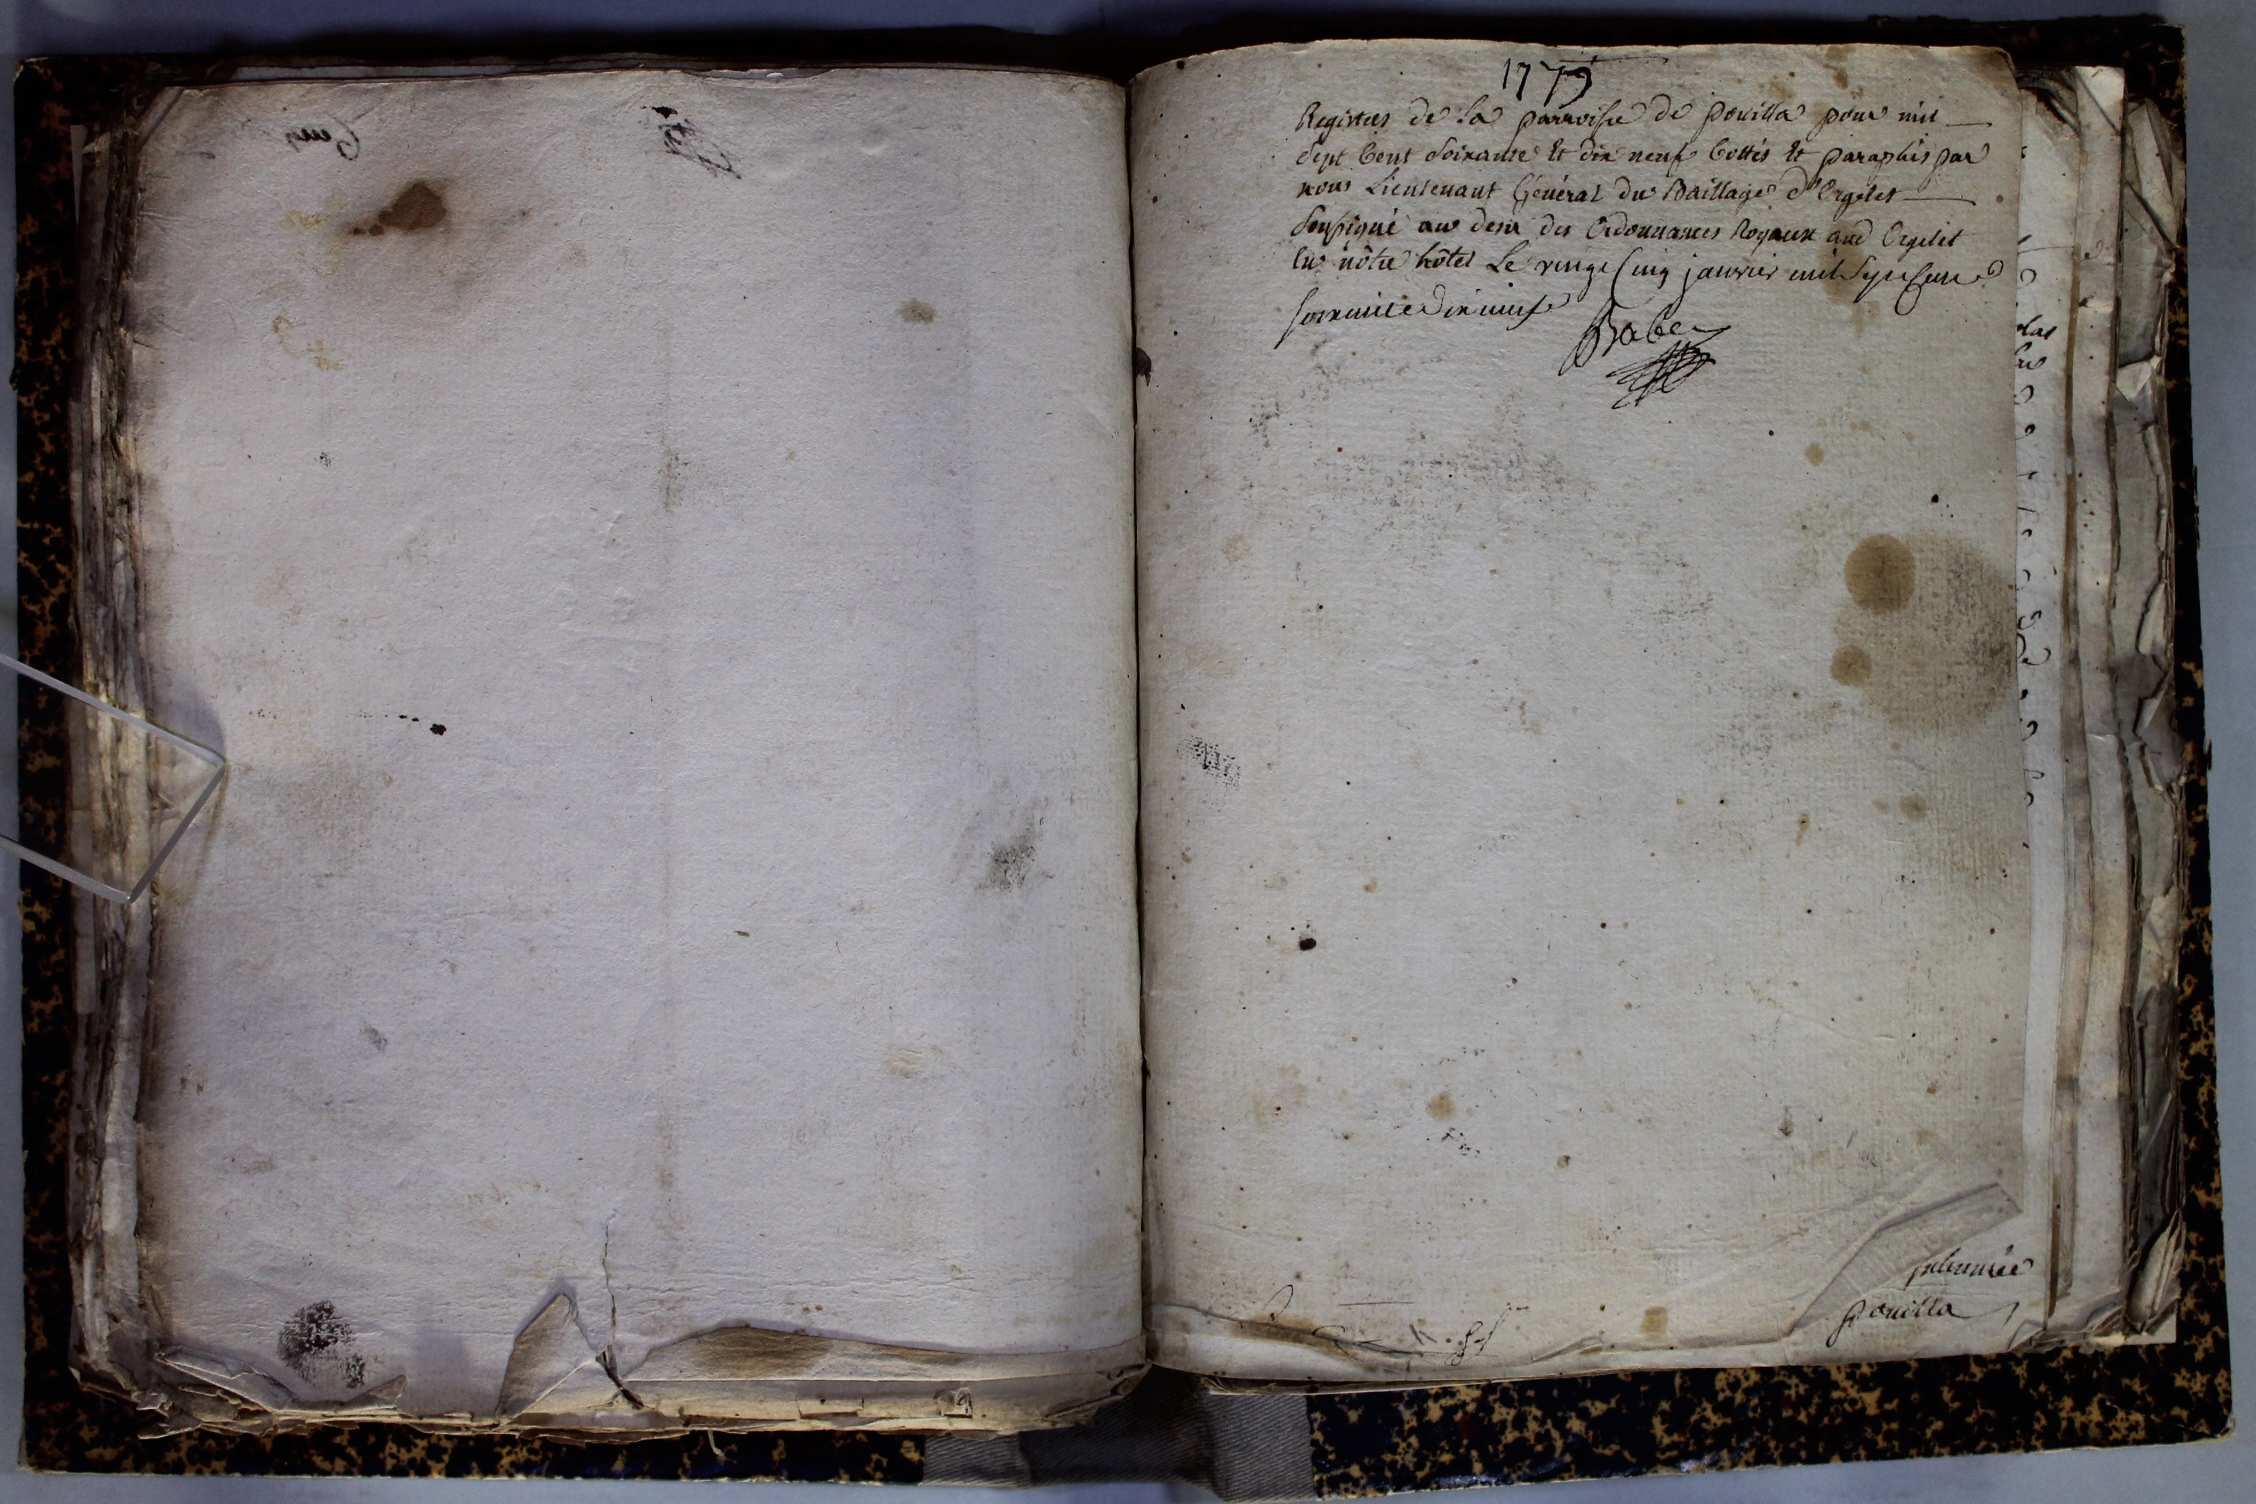 1779
Registres de la parroisse de poüilla pour mil
Sept Cent Soixante Et dix neuf Cottés Et paraphés par
nous Lieutenant Général du Baillage d'Orgelet
Soussigné au desir des Ordonnances Royaux aud Orgelet
En nôtre hôtel Le vingt Cinq janvier mil Sept Cent
soixante dix neuf
Babey
poüilla